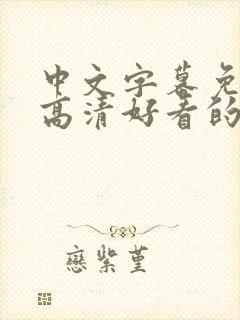 中文字幕免
高清好看的
戀紫堇